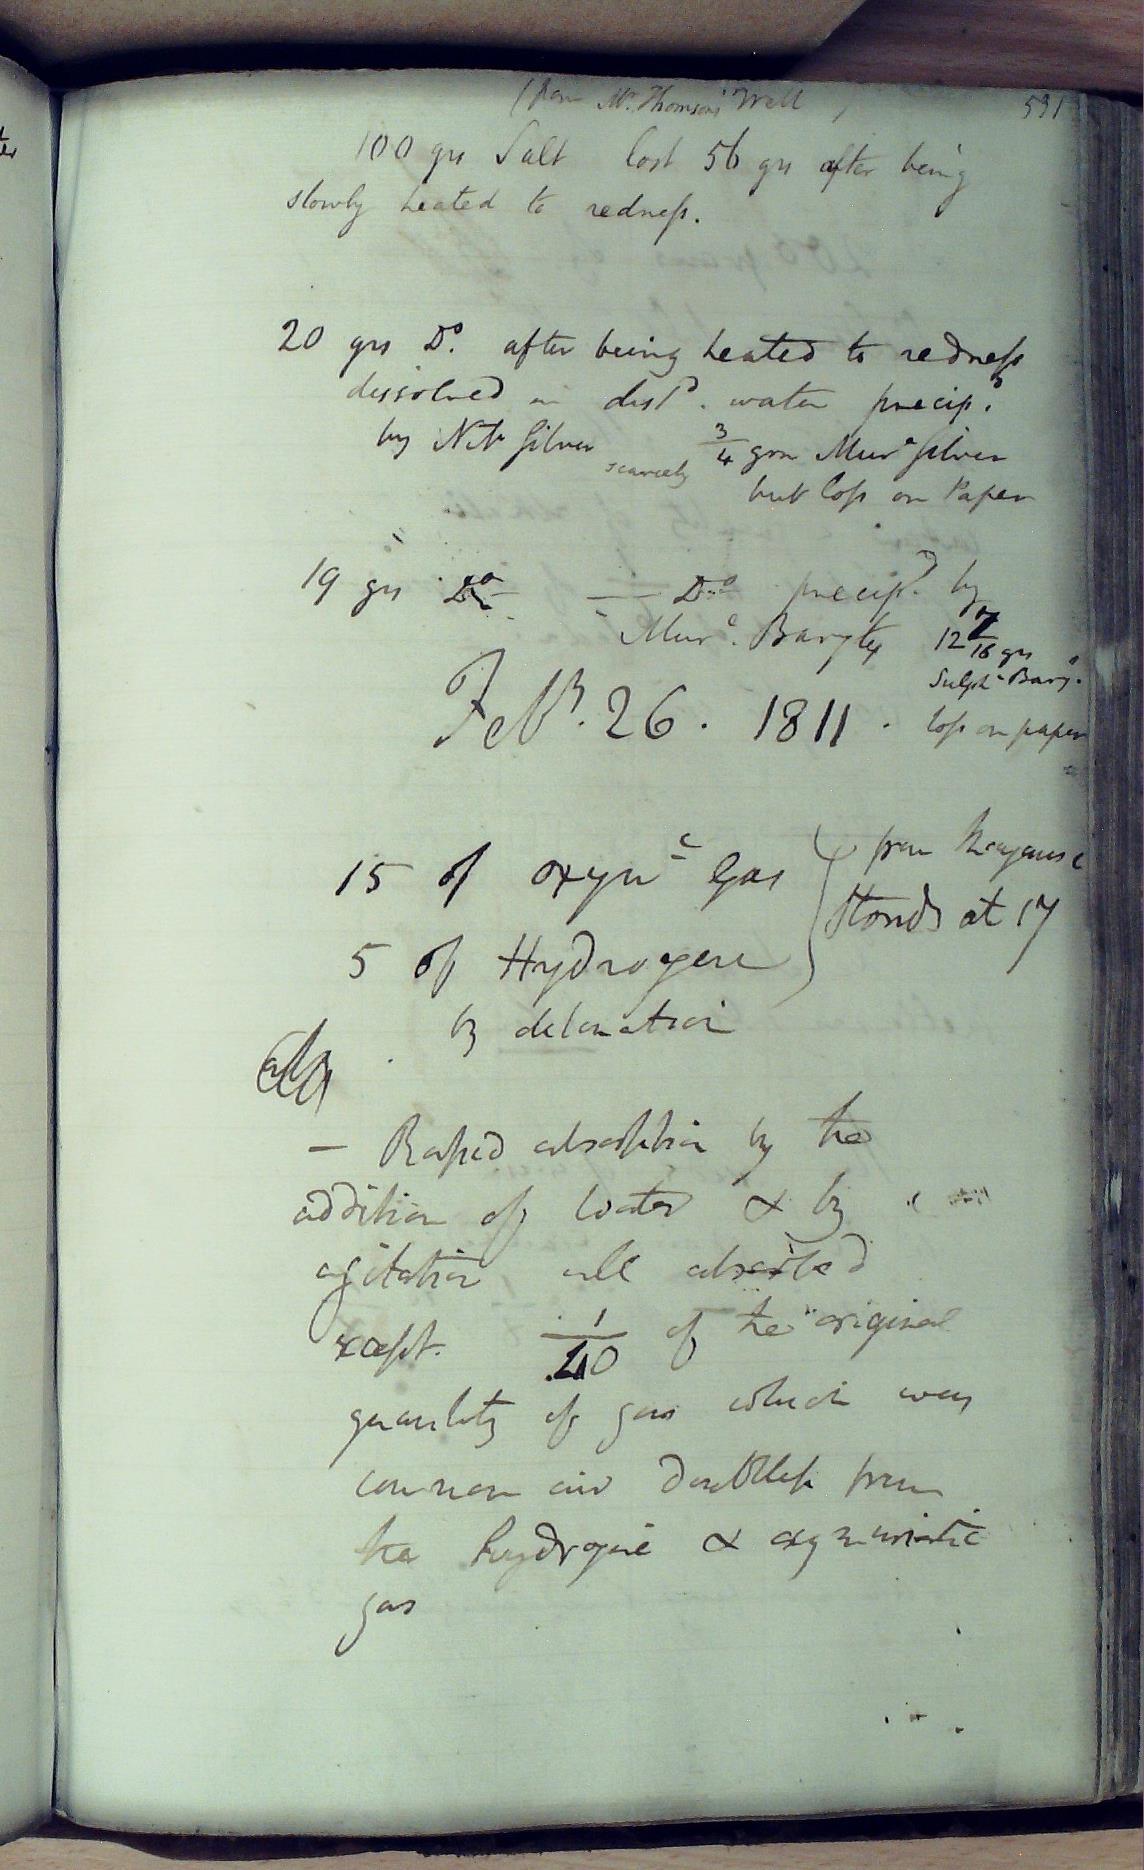 (from Mr. Thomsons Well ) 531
100 grs Salt lost 56 grs after being
slowly heated to redness.
20 grs Do. after being heated to redness
dissolved in distd. water precipd.
by Nite Silver scarcely 3/4 grn Mure Silver
but loss on Paper
19 grs Do — Do precipd. by
Mure. Barytes 12 7/16 grs
Sulphe Bary.
loss on paper
Feby. 26. 1811.
15 of oxymc Gas from Manganese
5 of Hydrogene stands at 17
by detonation
— Rapid absorption by the
addition of water & by
agitation all absorbed
except. 1/40 of the original
quantity of gas which was
common air doubtless from
the hydrogene & oxymuriatic
gas